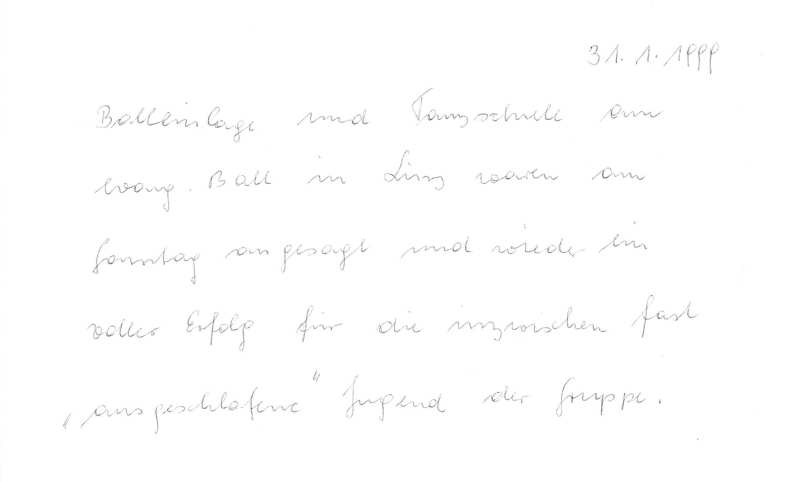 31. 1. 1999
Balleinlage und Tanzschule am
evang. Ball in Linz waren am
Samstag angesagt und wieder ein
voller Erfolg für die inzwischen fast
„ausgeschlafene" Jugend der Gruppe.